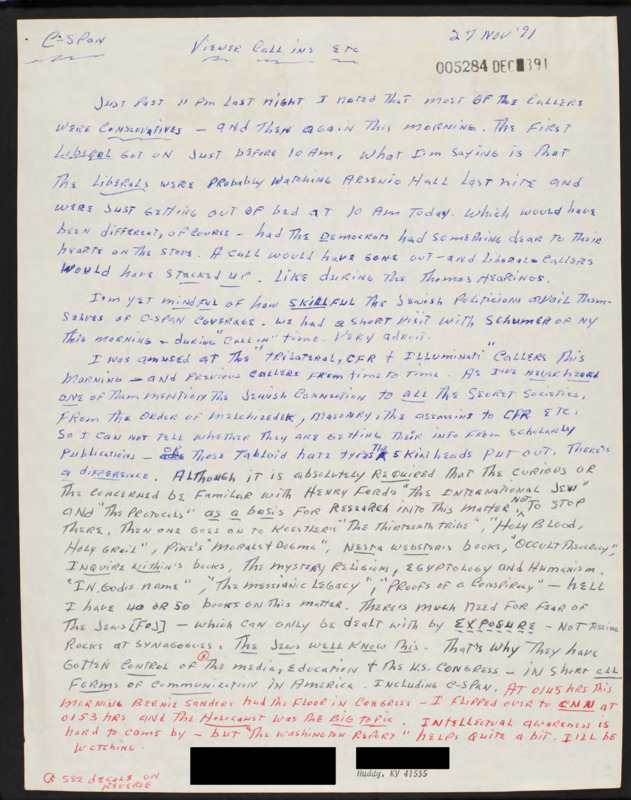 C-SPAN
VIEWER CALL INS ETC
27 NOV '91
005284 DEC 391
JUST PAST 11 PM LAST NIGHT I NOTED THAT MOST OF THE CALLERS
WERE CONSERVATIVES - AND THEN AGAIN THIS MORNING. THE FIRST
LIBERAL GOT ON JUST BEFORE 10 AM. WHAT I'M SAYING IS THAT
THE LIBERALS WERE PROBABLY WATCHING ARSENIO HALL LAST NITE AND
WERE JUST GETTING OUT OF BED AT 10 AM TODAY. WHICH WOULD HAVE
BEEN DIFFERENT, OF COURSE - HAD THE DEMOCRATS HAD SOMETHING DEAR TO THEIR
HEARTS ON THE STOVE. A CALL WOULD HAVE GONE OUT - AND LIBERAL CALLERS
WOULD HAVE STACKED UP. LIKE DURING THE THOMAS HEARINGS.
I'M YET MINDFUL OF HOW SKILLFUL THE JEWISH POLITICIANS AVAIL THEM-
SELVES OF C-SPAN COVERAGE. WE HAD A SHORT VISIT WITH SCHUMER OF NY
THIS MORNING - DURING "CALL IN" TIME. VERY ADROIT.
I WAS AMUSED AT THE "TRILATERAL, CFR + ILLUMINATI" CALLERS THIS
MORNING - AND PREVIOUS CALLERS FROM TIME TO TIME. AS I'VE NEVER HEARD
ONE OF THEM MENTION THE JEWISH CONNECTION TO ALL THE SECRET SOCIETIES,
FROM THE ORDER OF MELCHIZEDEK, MASONRY, THE ASSASINS TO CFR ETC.
SO I CAN NOT TELL WHETHER THEY ARE GETTING THEIR INFO FROM SCHOLARLY
PUBLICATIONS - THOSE TABLOID HATE TYPES THE SKINHEADS PUT OUT. THERE'S
A DIFFERENCE. ALTHOUGH IT IS ABSOLUTELY REQUIRED THAT THE CURIOUS OR
THE CONCERNED BE FAMILAR WITH HENRY FORDS "THE INTERNATIONAL JEW"
AND "THE PROTOCOLS" AS A BASIS FOR RESEARCH INTO THIS MATTER NOT TO STOP
THERE, THEN ONE GOES ON TO KOESTLER'S "THE THIRTEENTH TRIBE", "HOLY BLOOD,
HOLY GRAIL", PIKE'S "MORALS + DOGMA", NESTA WEBSTER'S BOOKS, "OCCULT THEOCRACY",
INQUIRE WITHIN'S BOOKS, THE MYSTERY RELIGIONS, EGYPTOLOGY AND HUMANISM.
"IN GOD'S NAME", "THE MESSIANIC LEGACY", "PROOFS OF A CONSPIRACY" - HELL
I HAVE 40 OR 50 BOOKS ON THIS MATTER. THERE IS MUCH NEED FOR FEAR OF
THE JEWS [FOJ] - WHICH CAN ONLY BE DEALT WITH BY EXPOSURE - NOT TOSSING
ROCKS AT SYNAGOGUES. THE JEWS WELL KNOW THIS. THAT'S WHY THEY HAVE
GOTTEN CONTROL OF THE MEDIA, EDUCATION + THE U.S. CONGRESS - IN SHORT ALL
FORMS OF COMMUNICATION IN AMERICA. INCLUDING C-SPAN. AT 0145 HRS THIS
MORNING BERNIE SANDERS HAD THE FLOOR IN CONGRESS - I FLIPPED OVER TO CNN AT
0153 HRS AND THE HOLOCAUST WAS THE BIG TOPIC. INTELLECTUAL AWARENESS IS
HARD TO COME BY - BUT "THE WASHINGTON REPORT" HELPS QUITE A BIT. I'LL BE
WATCHING.
Haddy, KY 41535
SEE DECALS ON
REVERSE